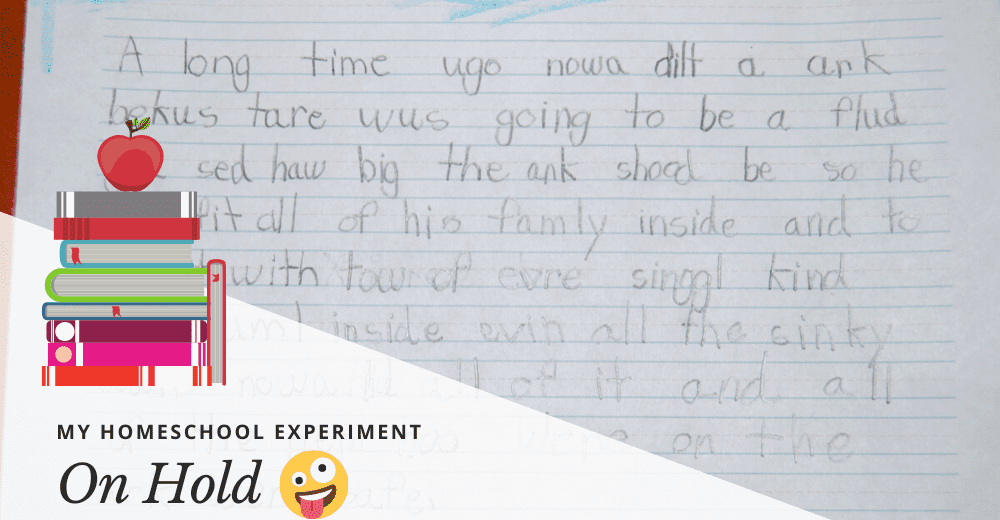 A long time ugo nowa dilt a ark
bekus tare wus going to be a flud
sed haw big the ank shood be so he
fit all of his famly inside and to
with tow of evre singgl kind
inside evin all the sinky
all of it and all
on the
MY HOMESCHOOL EXPERIMENT
On Hold